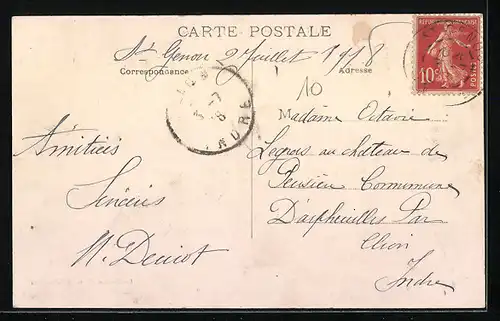 CARTE POSTALE
St Genou 2 Juillet 1918
Correspondance
Adresse
RÉPUBLIQUE FRANÇAISE
10c
POSTES
10
INDRE
Madame Octavie
Legros au château de
Commune
D'arpheuilles Par
Clion
Indre
Amitiés
Sincères